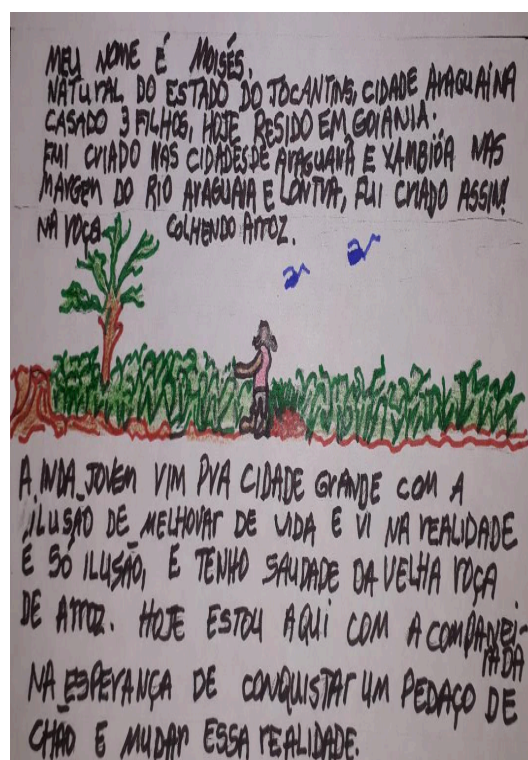 MEU NOME É MOISÉS,
NATURAL DO ESTADO DO TOCANTINS, CIDADE ARAGUAÍNA
CASADO 3 FILHOS, HOJE RESIDO EM GOIANIA.
FUI CRIADO NAS CIDADES DE ARAGUANÃ E XAMBIOÁ NAS
MARGEM DO RIO ARAGUAIA E LONTRA, FUI CRIADO ASSIM!
NA ROÇA COLHENDO ARROZ.
AINDA JOVEM VIM PRA CIDADE GRANDE COM A
ILUSÃO DE MELHORAR DE VIDA E VI NA REALIDADE
É SÓ ILUSÃO, E TENHO SAUDADE DA VELHA ROÇA
DE ARROZ. HOJE ESTOU AQUI COM A COMPANEI-
RADA
NA ESPERANÇA DE CONQUISTAR UM PEDAÇO DE
CHÃO E MUDAR ESSA REALIDADE.